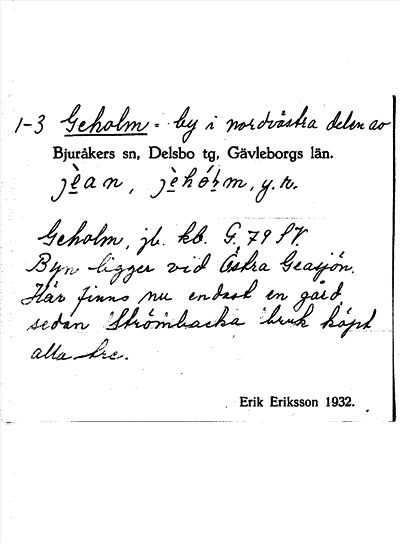 1-3 Geholm = by i nordvästra delen av
Bjuråkers sn, Delsbo tg, Gävleborgs län.
jean, jeholm, y. n.
Geholm, jb. kb. G. 79 SV.
Byn ligger vid Östra Geasjön.
Här finns nu endast en gård,
sedan Strömbacka bruk köpt
alla tre.
Erik Eriksson 1932.